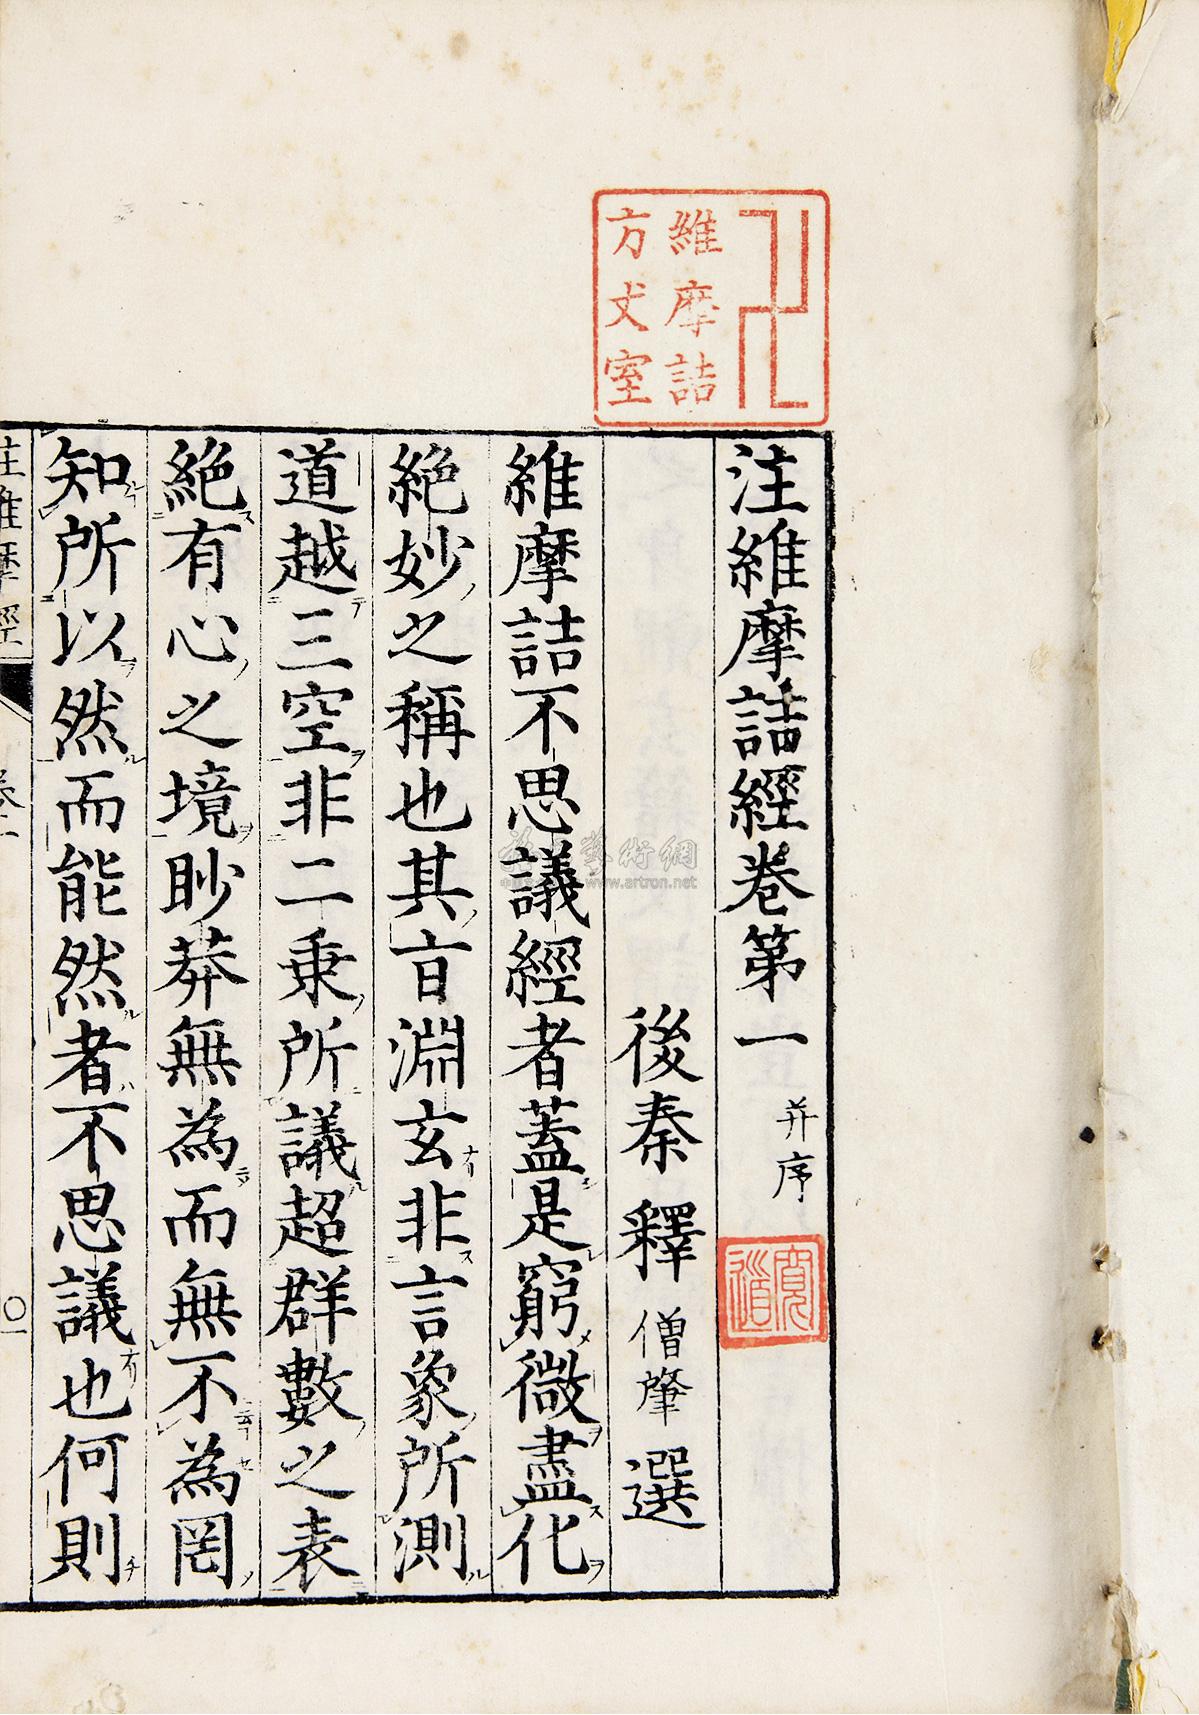 維摩詰
方丈室
注維摩詰經卷第一 并序
後秦釋 僧肇 選
維摩詰不思議經者蓋是窮微盡化
絶妙之稱也其㫖淵玄非言象所測
道越三空非二乗所議超群數之表
絶有心之境眇莽無為而無不為罔
知所以然而能然者不思議也何則
注維摩經 卷一 〇一
www.artron.net